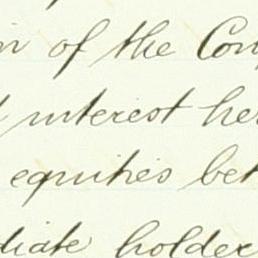 of the Con
interest he
equities bet
diate holder